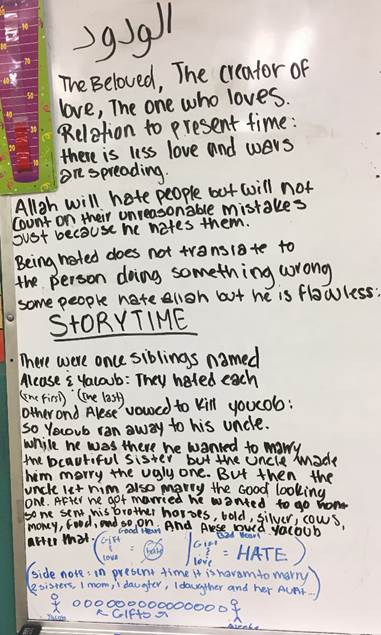 الودود
The Beloved, The creator of
love, The one who loves.
Relation to present time:
there is less love and wars
are spreading.
Allah will hate people but will not
count on their unreasonable mistakes
Just because he hates them.
Being hated does not translate to
the person doing something wrong
some people hate allah but he is flawless:
STORYTIME
There were once siblings named
Alease & Yacoub: They hated each
(the first) (the last)
other and Alese vowed to kill youcob:
so Yacoub ran away to his uncle.
While he was there he wanted to marry
the beautiful sister but the uncle made
him marry the ugly one. But then the
uncle let him also marry the Good looking
one. After he got married he wanted to go home
so he sent his brother horses, bold, silver, cows,
money, food, and so on. And Alese loved Yacoub
after that.
Good Heart
Gift
&
love
=
hate
Bad Heart
Gift
&
love
= HATE
(side note: in present time it is haram to marry
2 sisters, 1 mom, 1 daughter, 1 daughter and her AUNT...)
Gifts
Yacoub